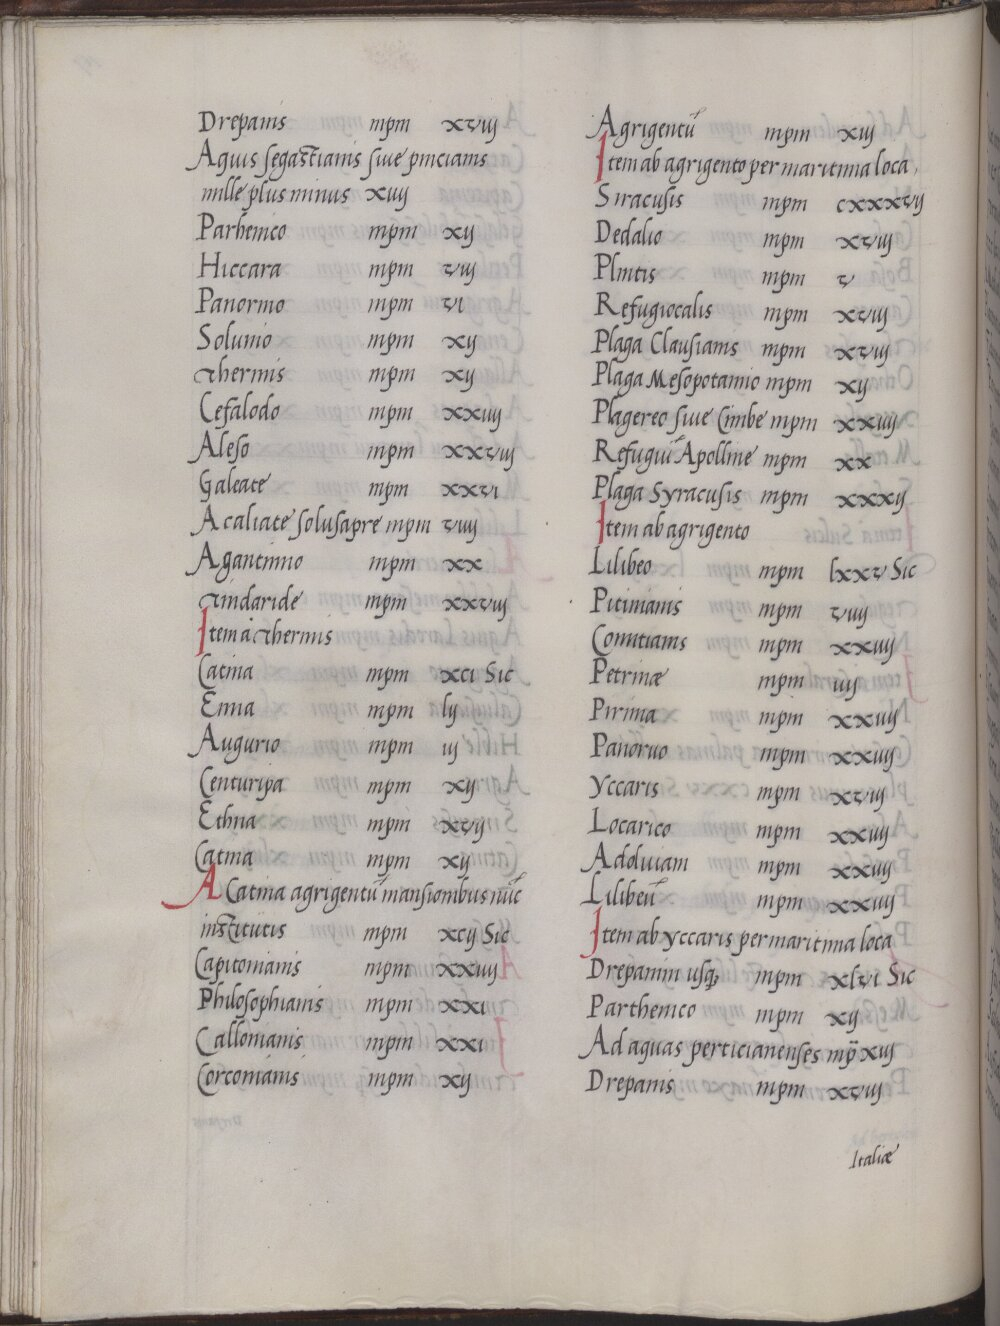 Drepanis mpm xviij
Aquis segastianis sive pinciams
mille plus minus xiiij
Parhenico mpm xij
Hiccara mpm viij
Panormo mpm vi
Solunio mpm xij
Thermis mpm xij
Cefalodo mpm xxiiij
Aleso mpm xxviij
Galeate mpm xxvi
A caliate solusapre mpm viiij
Agantinno mpm xx
Tindaride mpm xxviij
Item a Thermis
Catina mpm xci Sic
Enna mpm lij
Augurio mpm iij
Centuripa mpm xij
Ethna mpm xvij
Catina mpm xij
A Catina agrigentū mansionibus nūc
institutis mpm xcij Sic
Capitonianis mpm xxiiij
Philosophianis mpm xxi
Callonianis mpm xxi
Corconianis mpm xij
Agrigentū mpm xiij
Item ab agrigento per maritima loca
Siracusis mpm cxxxvij
Dedalio mpm xviij
Plintis mpm v
Refugiocalis mpm xviij
Plaga Clausianis mpm xviij
Plaga Mesopotamio mpm xij
Plagereo sive Cimbe mpm xxiiij
Refugiū Apolline mpm xx
Plaga Syracusis mpm xxxij
Item ab agrigento
Lilibeo mpm lxxv Sic
Pitinianis mpm viiij
Comitianis mpm xxiiij
Petrinæ mpm iiij
Pirima mpm xxiiij
Panoruo mpm xxiiij
Yccaris mpm xviij
Locarico mpm xxiiij
Adduiam mpm xxiiij
Lilibeū mpm xxiiij
Item ab yccaris per maritima loca
Drepanin usq; mpm xlvi Sic
Parthenico mpm xij
Ad aquas perticianenses mp̄ xiij
Drepanis mpm xviij
Italiæ